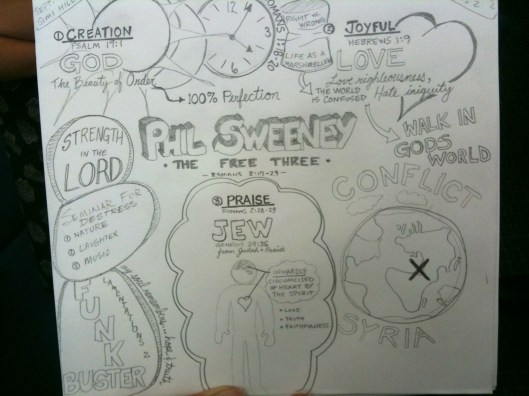 ① CREATION
PSALM 19:1
GOD
The Beauty of Order
100% PERFECTION
ROMANS 1:18-20
RIGHT or WRONG
LIFE AS A MARSHMELLOW
THE WORLD IS CONFUSED
② JOYFUL
HEBREWS 1:9
LOVE
Love righteousness,
Hate iniquity
WALK IN
GODS
WORLD
PHIL SWEENEY
• THE FREE THREE •
STRENGTH
IN THE
LORD
SEMINAR FOR
DESTRESS
① NATURE
② LAUGHTER
③ MUSIC
FUNK
BUSTER
③ PRAISE
ROMANS 2:28-29
JEW
from Judah = Praise
INWARDLY
CIRCUMCISED
OF HEART BY
THE SPIRIT
• LOVE
• FAITHFULNESS
CONFLICT
X
SYRIA